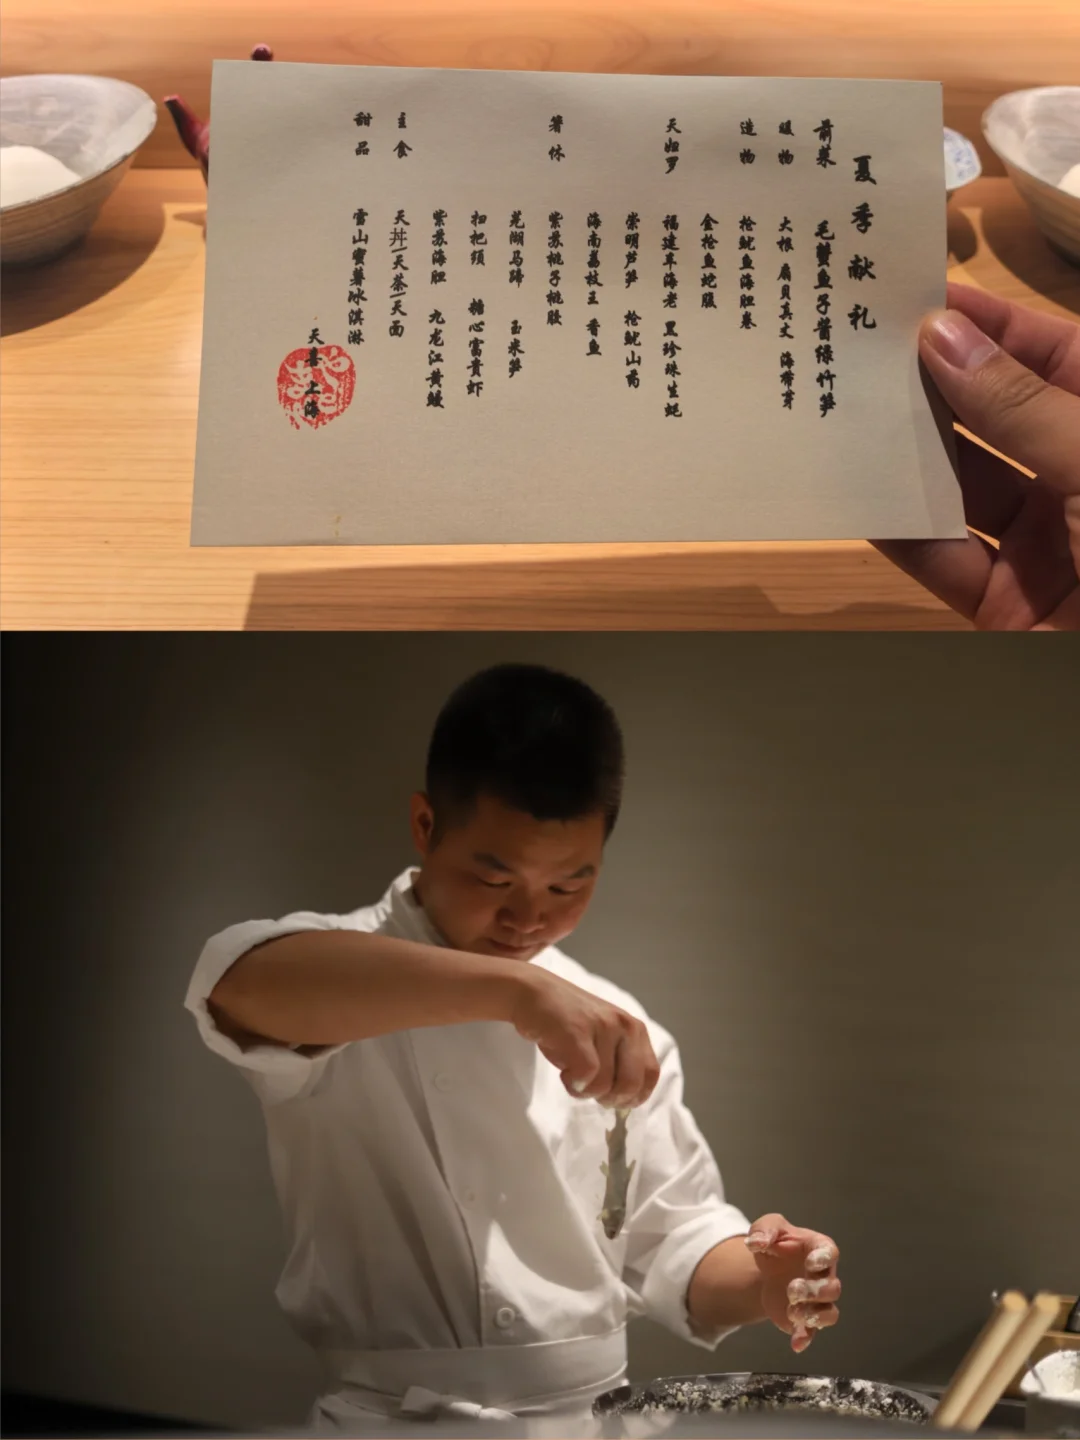 夏季献礼
前菜 毛蟹鱼子酱绿竹笋
暖物 大根 扇贝真丈 海带芽
造物 枪鱿鱼海胆卷
金枪鱼蛇腹
天妇罗 福建车海老 黑珍珠生蚝
崇明芦笋 枪鱿山药
海南荔枝王 香鱼
箸休 紫苏桃子桃胶
芜湖马蹄 玉米笋
扫把须 糖心富贵虾
紫苏海胆 九龙江黄鳗
主食 天丼/天茶/天面
甜品 雪山蜜薯冰淇淋
天喜 上海